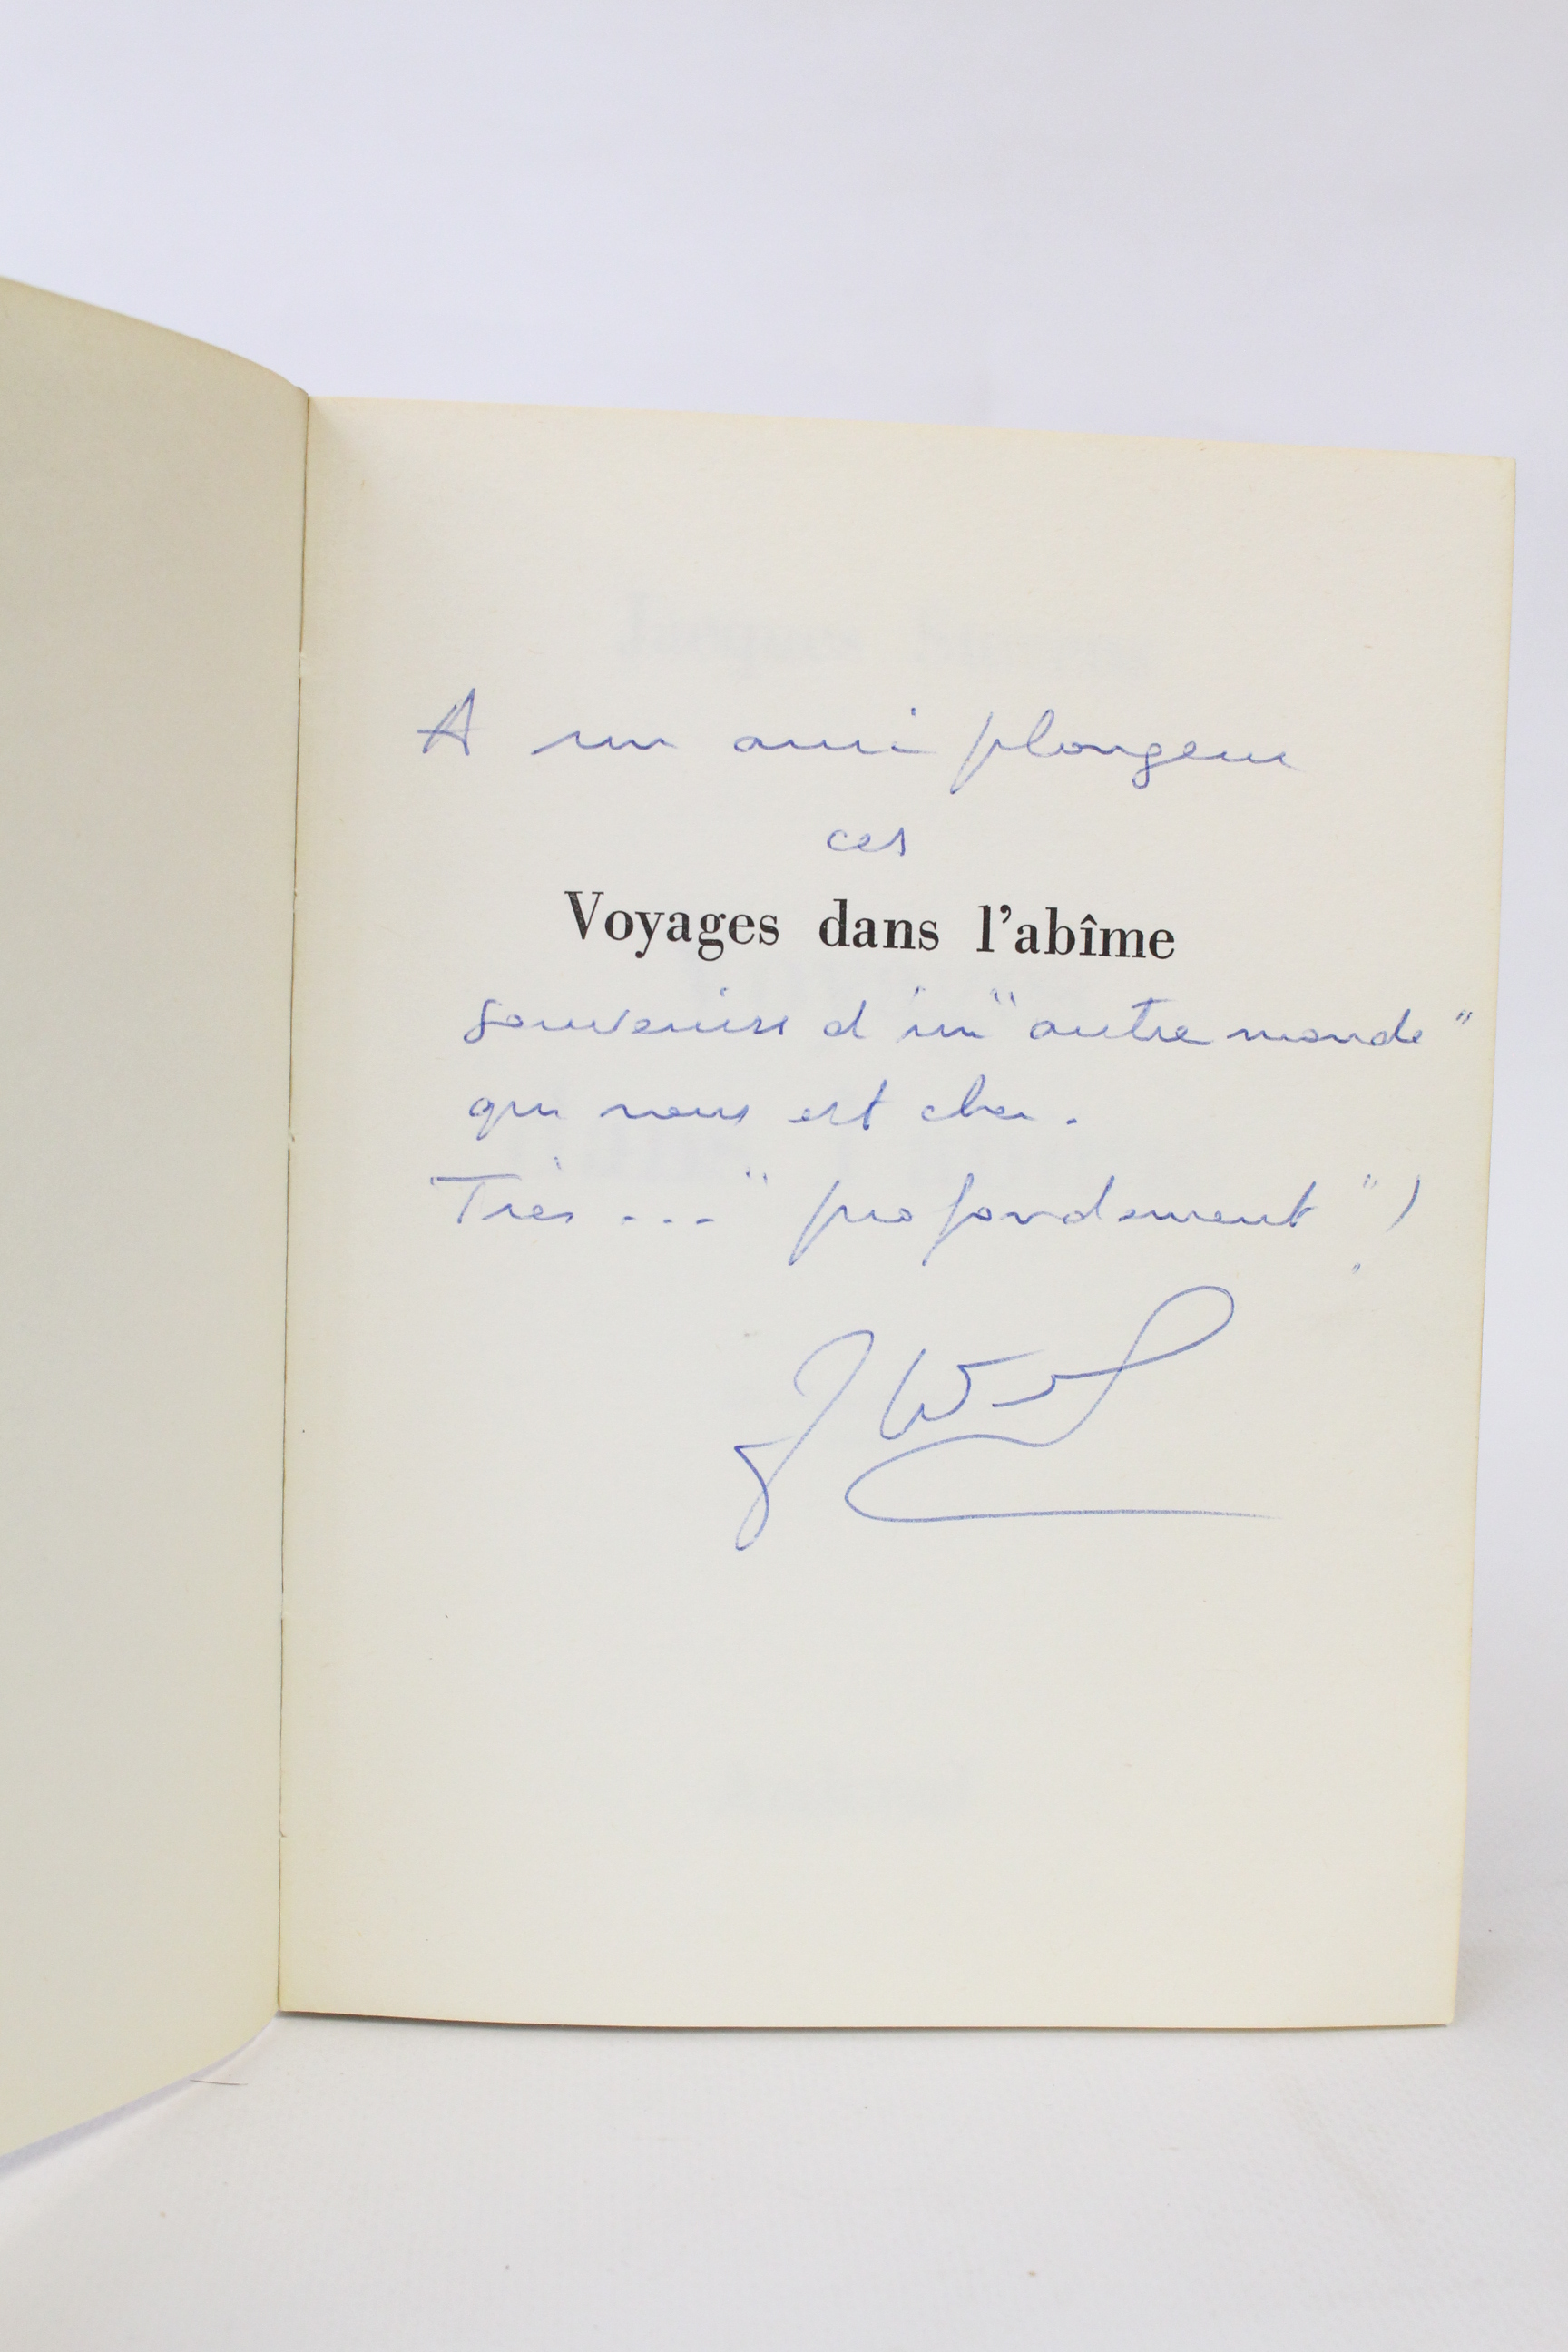 A un ami plongeur
ces
Voyages dans l'abîme
souvenirs d'un "autre monde"
qui nous est cher.
Très ... "profondément")